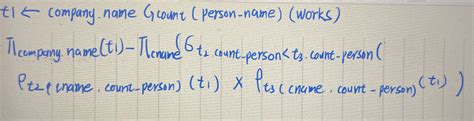 t1 ← company.name G count (person-name) (works)
Π company.name (t1) - Π cname (σ t2.count-person < t3.count-person (
ρ t2 (cname, count-person) (t1) × ρ t3 (cname, count-person) (t1) )